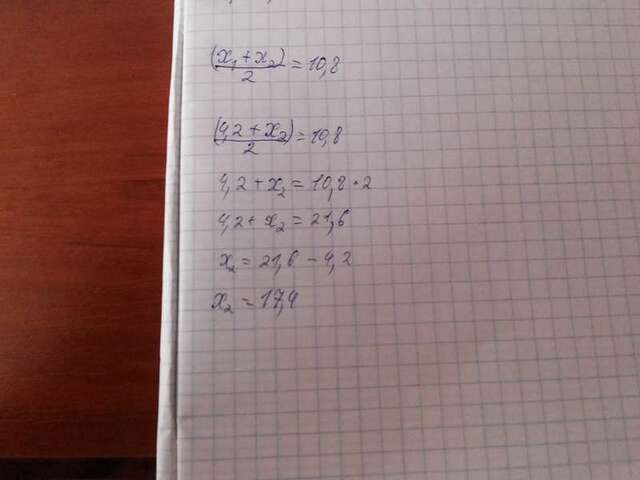 (x₁ + x₂)/2 = 10,8
(4,2 + x₂)/2 = 10,8
4,2 + x₂ = 10,8 · 2
4,2 + x₂ = 21,6
x₂ = 21,6 - 4,2
x₂ = 17,4